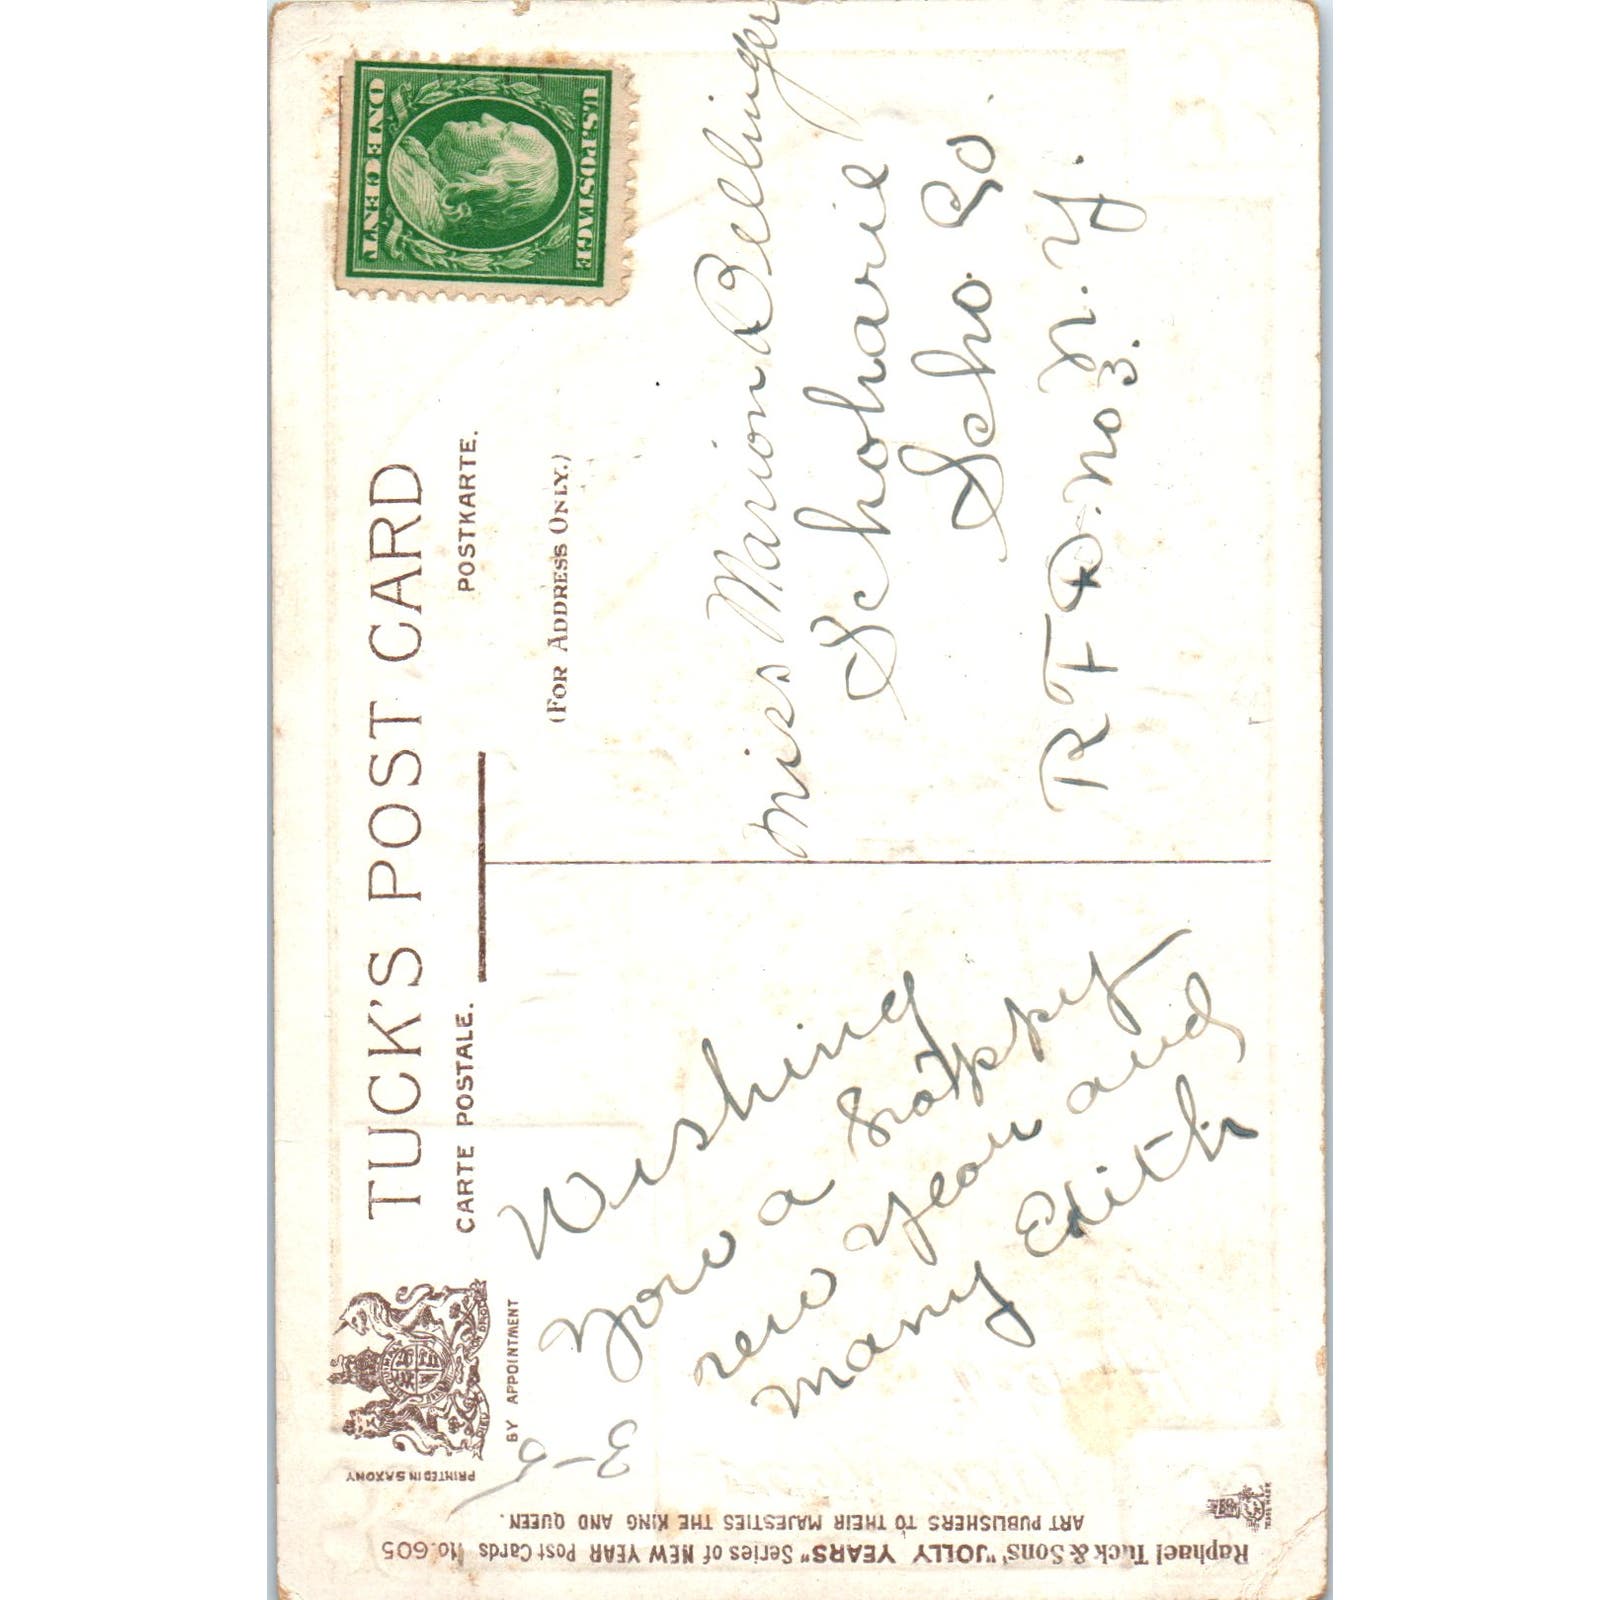 TUCK'S POST CARD
CARTE POSTALE.
POSTKARTE.
BY APPOINTMENT
(FOR ADDRESS ONLY.)
U.S. POSTAGE
ONE CENT
Wishing
you a happy
new year and
many Edith
Miss Marion Bellinger
Schoharie
Scho. Co.
N.Y.
RFD. No 3.
PRINTED IN SAXONY
Raphael Tuck & Sons' "JOLLY YEARS" Series of NEW YEAR Post Cards No. 605
ART PUBLISHERS TO THEIR MAJESTIES THE KING AND QUEEN.
TRADE MARK